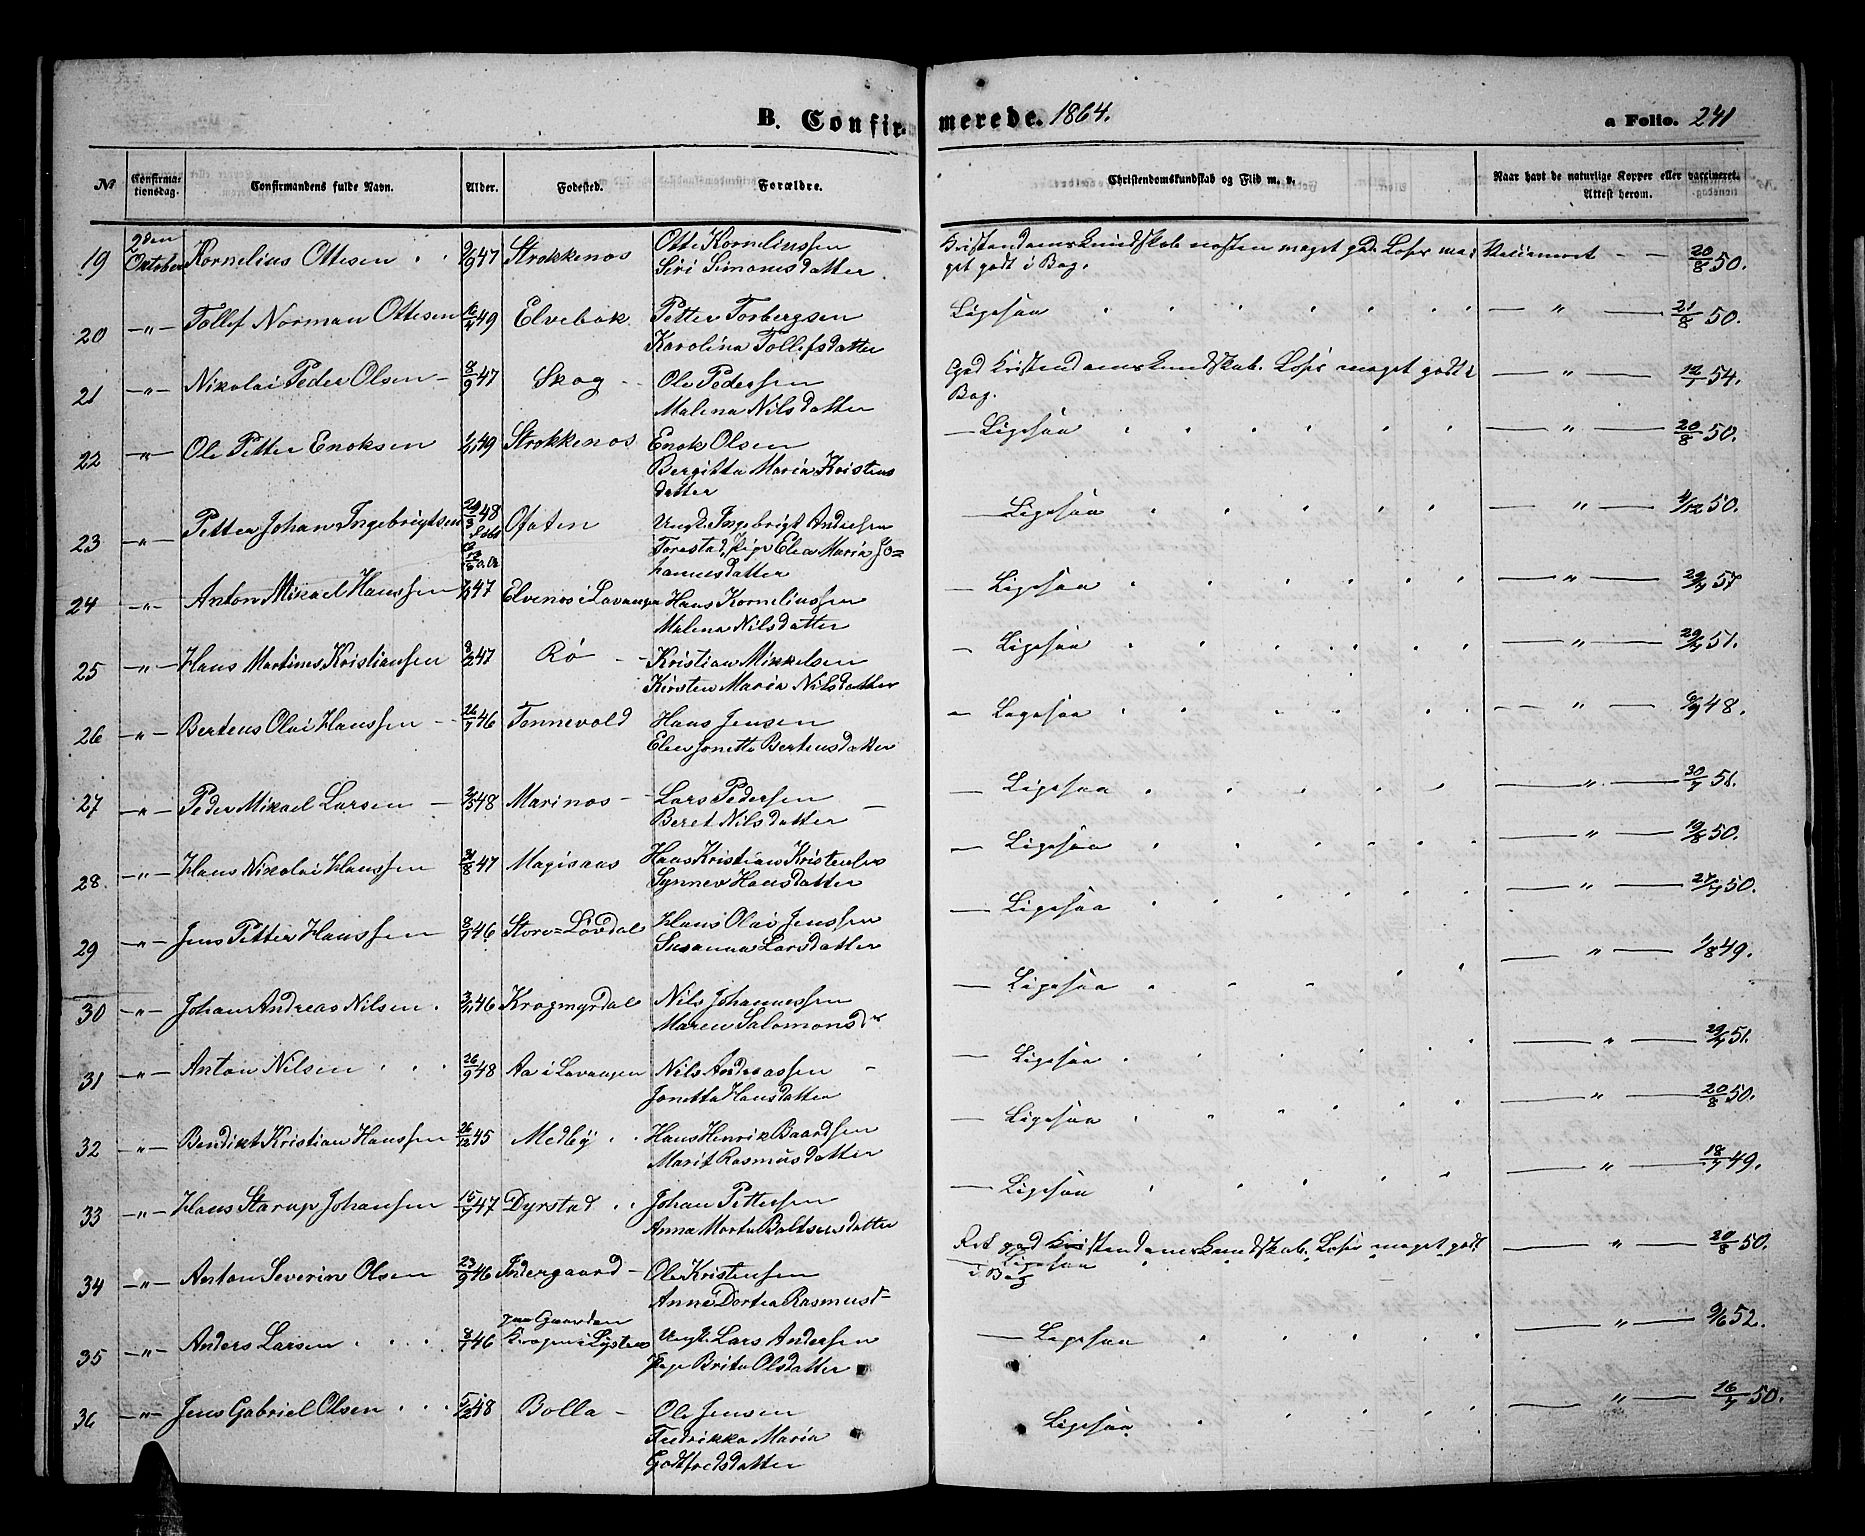 B. Confir-
merede. 1864.
a Folio. 241
No
Confirma-
tionsdag.
Confirmandens fulde Navn.
Alder.
Fødested.
Forældre.
Christendomskundskab og Flid m. v.
Naar havt de naturlige Kopper eller vaccineret.
Attest herom.
19 2den October Kornelius Ottesen 47 Strokkenæs Otte Korneliussen
Siri Simonsdatter Kristendomskundskab næsten meget god. Læser me-
get godt i Bog. 20/8 50.
20 —"— Tollef Norman Ottesen 49 Elvebak Petter Torbergsen
Karolina Tollefsdatter Ligesaa " 21/8 50.
21 —"— Nikolai Peder Olsen 8/9 47 Skog Ole Pedersen
Malena Nilsdatter God Kristendomskundskab. Læser meget godt i
Bog. " 54.
22 —"— Ole Petter Enoksen 49 Strokkenæs Enok Olsen
Bergitta Maria Kristens
datter Ligesaa " 20/8 50.
23 —"— Petter Johan Ingebrigtsen 48 Ofoten Ungk. Ingebrigt Andersen
Forestad, Pige Elea Maria Jo=
hannesdatter Ligesaa " 4/12 50.
24 —"— Anton Mikael Hanssen 47 Elvenæs i Lavangen Hans Korneliussen
Malena Nilsdatter Ligesaa " 29/7 57
25 —"— Hans Martinus Kristiansen 47 Rø Kristian Mikkelsen
Kirsten Maria Nilsdatter Ligesaa " 29/7 51.
26 —"— Berteus Olai Hanssen 26/7 46 Tennevold Hans Jensen
Elen Jonette Berteusdatter Ligesaa " 48.
27 —"— Peder Mikael Larsen 48 Marinæs Lars Pedersen
Beret Nilsdatter Ligesaa " 30/7 51.
28 —"— Hans Nikolai Hanssen 47 Magisaas Hans Kristian Kristensen
Synnev Hansdatter Ligesaa " 19/8 50.
29 —"— Jens Petter Hanssen 46 Store=Løvdal Hans Olai Jenssen
Susanna Larsdatter Ligesaa " 27/7 50.
30 —"— Johan Andreas Nilsen 46 Krogmyrdal Nils Johannessen
Maren Salomonsdr Ligesaa " 1/8 49.
31 —"— Anton Nilsen 26/9 48 Aa i Lavangen Nils Andreassen
Jonetta Hansdatter Ligesaa " 29/7 51.
32 —"— Bendikt Kristian Hanssen 26/12 45 Medby Hans Henrik Baardsen
Marit Rasmusdatter Ligesaa " 20/8 50.
33 —"— Hans Starup Johansen 15/7 47 Dyrstad Johan Pettersen
Anna Marta Baltsersdatter Ligesaa " 18/7 49.
34 —"— Anton Severin Olsen 23/9 46 Indergaard Ole Kristensen
Anne Dortea Rasmusd= Ret god Kristendomskundskab. Læser meget godt
i Bog Ligesaa " 20/8 50.
35 —"— Anders Larsen 46 paa Gaarden
Krogen i Lyster Ungk. Lars Andersen
Pige Brita Olsdatter Ligesaa " 9/6 52.
36 —"— Jens Gabriel Olsen 48 Bolla Ole Jensen
Fredrikka Maria
Godtfredsdatter Ligesaa " 16/7 50.